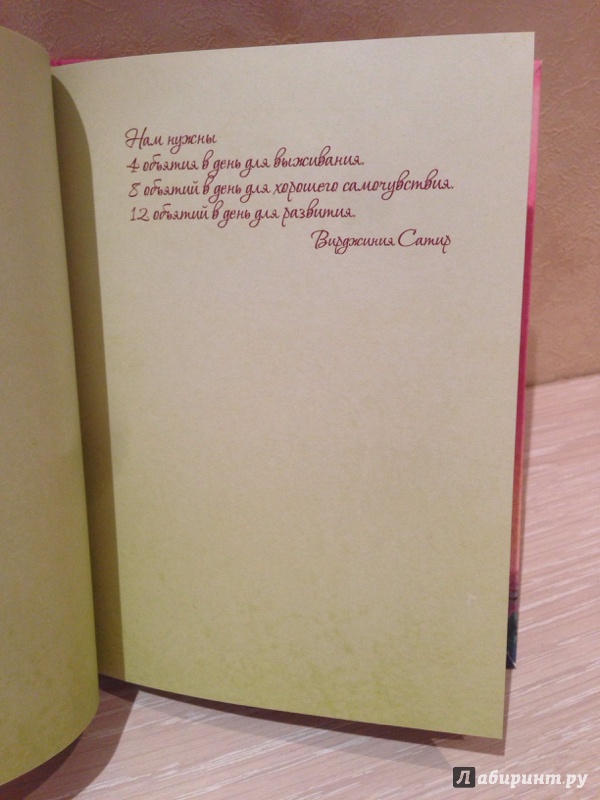 Нам нужны
4 объятия в день для выживания.
8 объятий в день для хорошего самочувствия.
12 объятий в день для развития.
Вирджиния Сатир
Лабиринт.ру